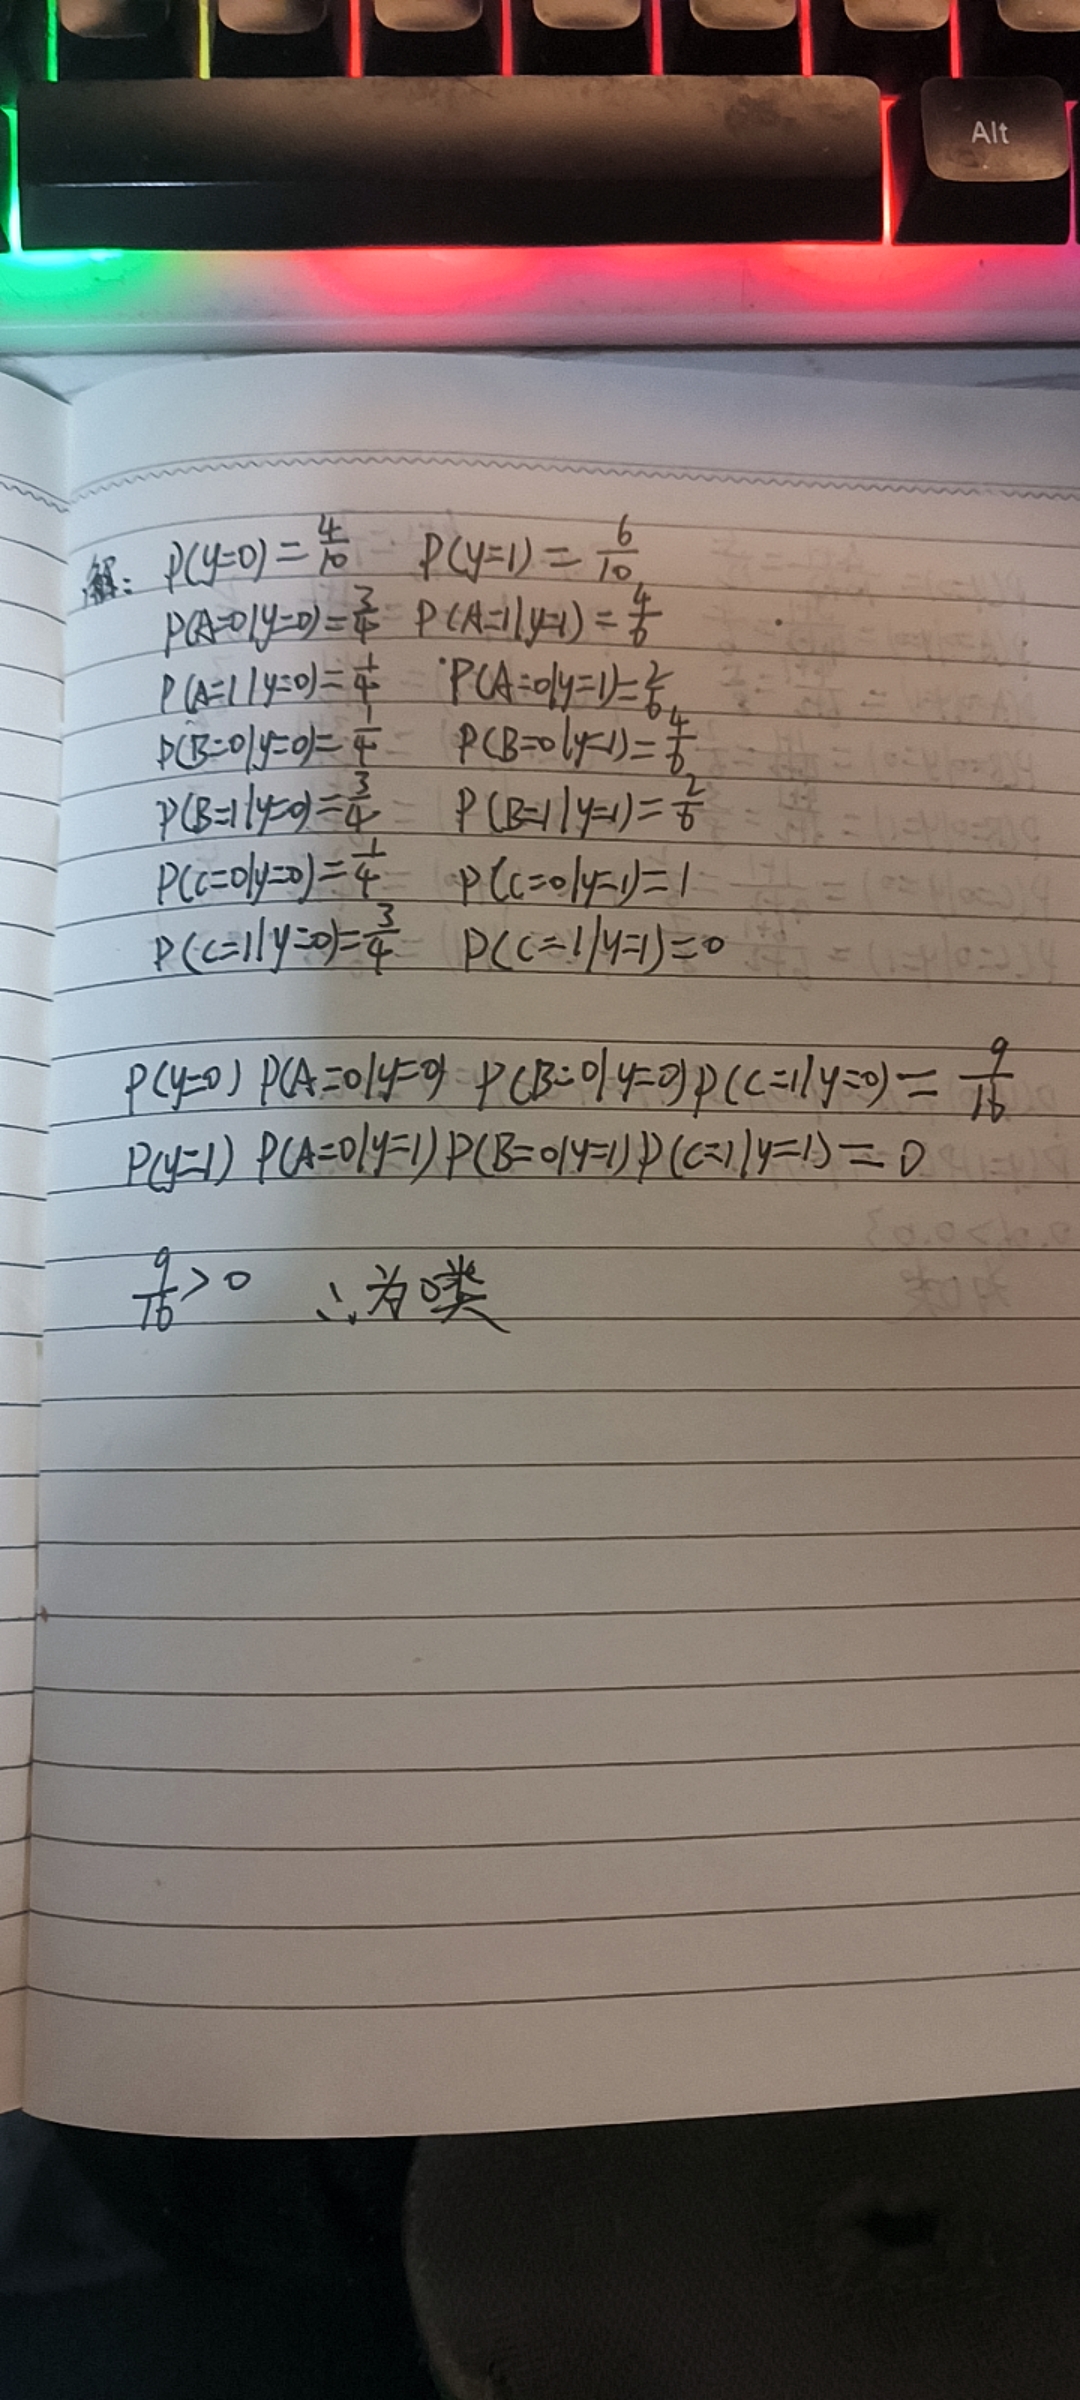 Alt
解: P(y=0) = 4/10 P(y=1) = 6/10
P(A=0|y=0) = 3/4 P(A=1|y=1) = 4/6
P(A=1|y=0) = 1/4 P(A=0|y=1) = 2/6
P(B=0|y=0) = 1/4 P(B=0|y=1) = 4/6
P(B=1|y=0) = 3/4 P(B=1|y=1) = 2/6
P(C=0|y=0) = 1/4 P(C=0|y=1) = 1
P(C=1|y=0) = 3/4 P(C=1|y=1) = 0
P(y=0) P(A=0|y=0) P(B=0|y=0) P(C=1|y=0) = 9/16
P(y=1) P(A=0|y=1) P(B=0|y=1) P(C=1|y=1) = 0
9/16 > 0 ∴为0类